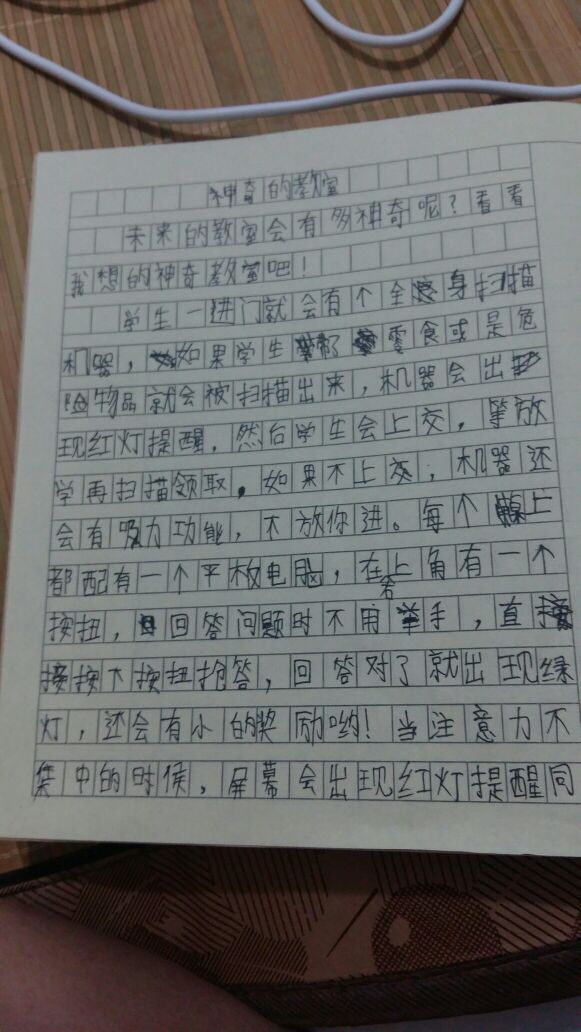 神奇的教室
未来的教室会有多神奇呢？看看
我想的神奇教室吧！
学生一进门就会有个全身扫描
机器，如果学生带了零食或是危
险物品就会被扫描出来，机器会出
现红灯提醒，然后学生会上交，等放
学再扫描领取。如果不上交，机器还
会有吸力功能，不放你进。每个桌上
都配有一个平板电脑，在右上角有一个
按扭，回答问题时不用举手，直接
按下按扭抢答，回答对了就出现绿
灯，还会有小的奖励哟！当注意力不
集中的时候，屏幕会出现红灯提醒同